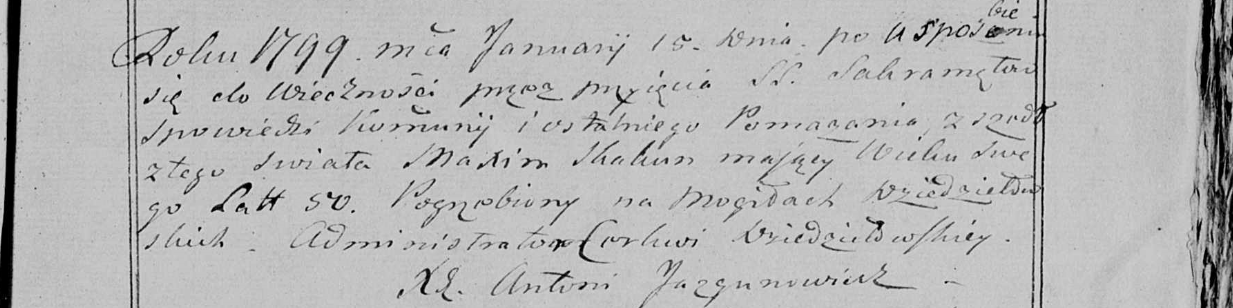 Roku 1799. mca January 15. Dnia. po usposobieniu
się do Wieczności przez przyięcia SS. Sakramętow
spowiedzi Komunij i ostatniego Pomazania, zszedł
z tego swiata Maxim Skakun maiący Wieku swe
go Latt 50. Pogrzebiony na Mogiłach Dziedziełow
skich. Administrator Cerkwi Dziedziełowskiey.
XD. Antoni Jazgunowicz